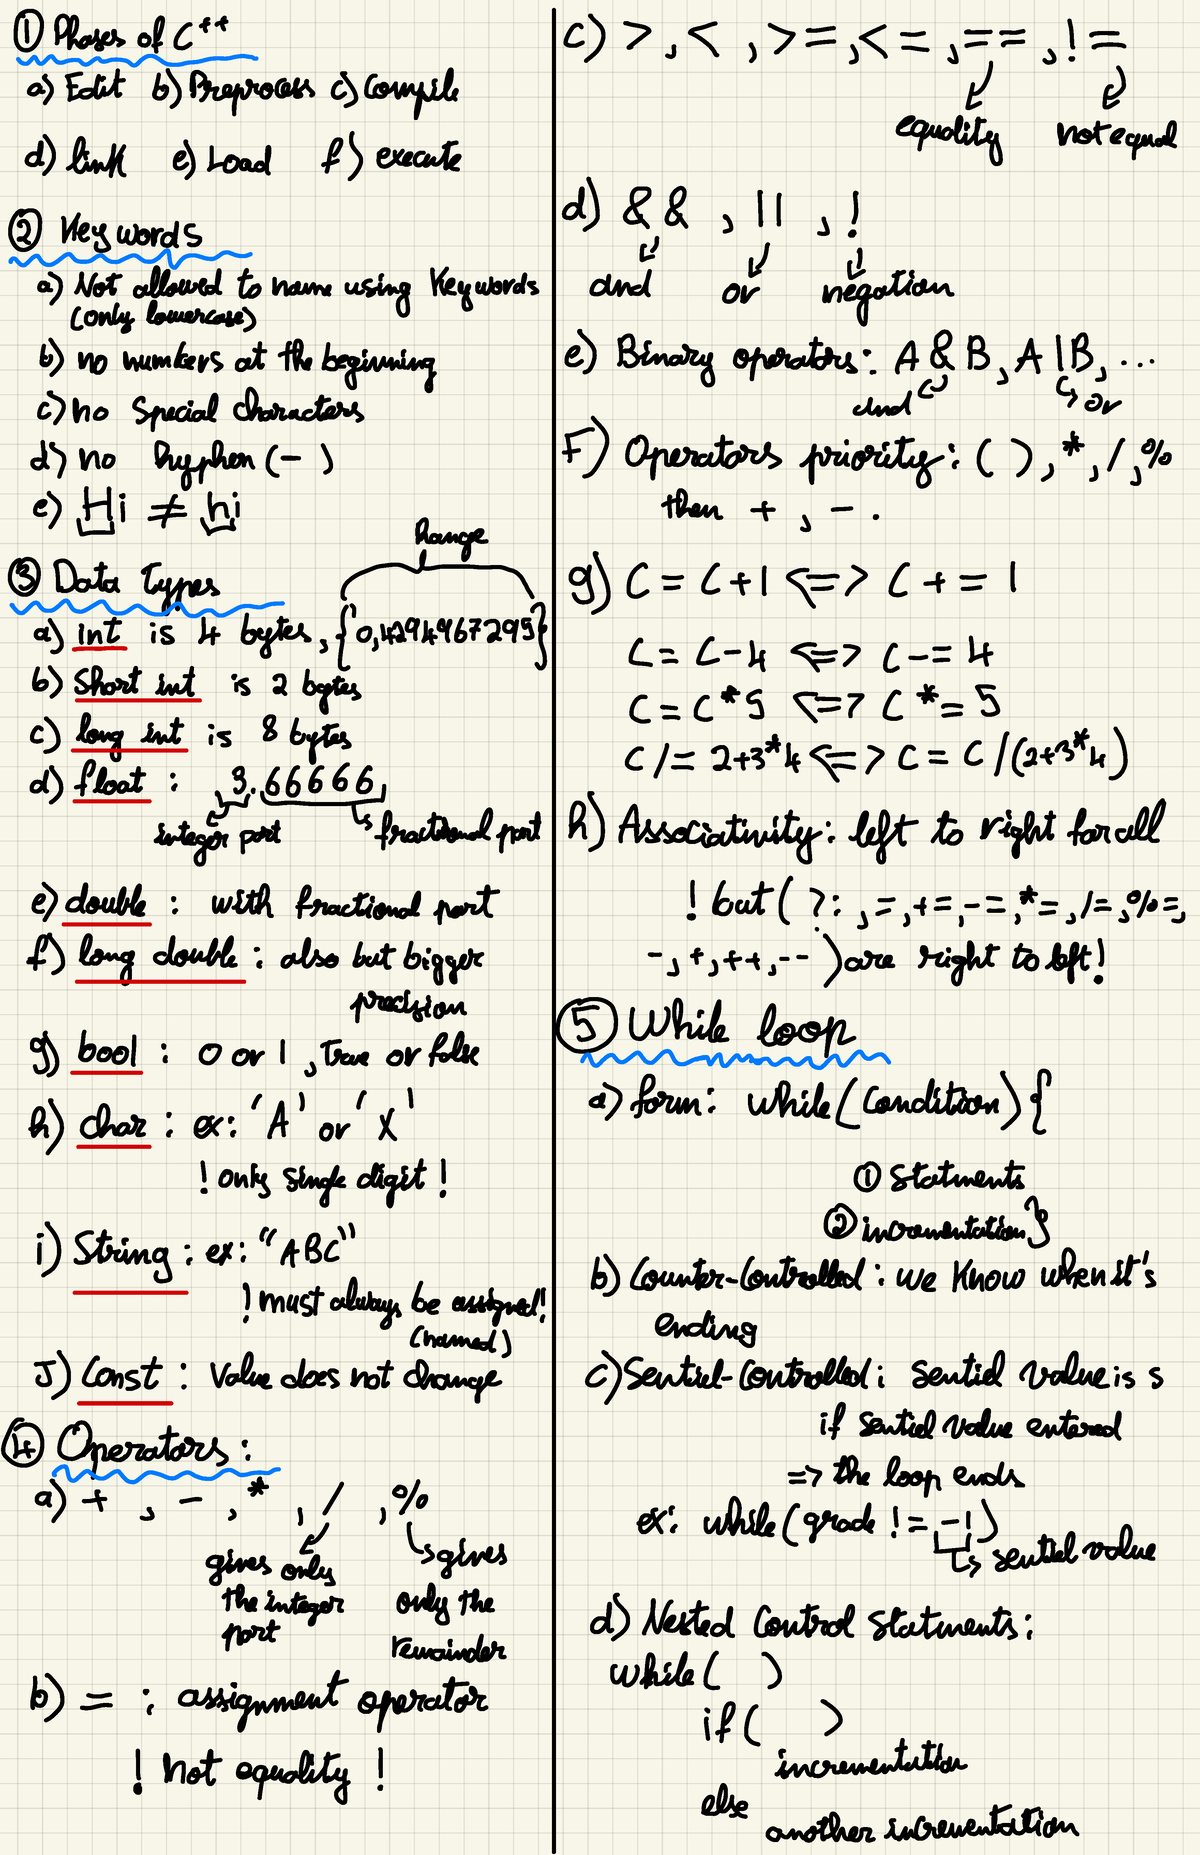 ① Phases of C++
a) Edit b) Preprocess c) Compile
d) link e) Load f) execute
② Keywords
a) Not allowed to name using Keywords
(only lowercase)
b) no numbers at the beginning
c) no special characters
d) no hyphen (-)
e) Hi ≠ hi
Range
③ Data Types
a) int is 4 bytes, {0,4294967295}
b) short int is 2 bytes
c) long int is 8 bytes
d) float : 3.66666,
integer part fractional part
e) double : with fractional part
f) long double : also but bigger
precision
g) bool : 0 or 1, True or false
h) char : ex: 'A' or 'X'
! only single digit !
i) String : ex: "ABC"
! must always be assigned!
(named)
J) Const : Value does not change
④ Operators :
a) + , - , * , / , %
gives only
the integer
part
gives
only the
remainder
b) = : assignment operator
! Not equality !
c) > , < , >= , <= , == , !=
equality not equal
d) && , || , !
and or negation
e) Binary operators: A & B, A | B, ...
and or
F) Operators priority: ( ), *, /, %
then + , - .
g) C = C+1 <=> C += 1
C = C-4 <=> C -= 4
C = C*5 <=> C *= 5
C /= 2+3*4 <=> C = C /(2+3*4)
h) Associativity: left to right for all
! but ( ?: , =, +=, -=, *=, /=, %=,
-, +, ++, -- ) are right to left!
⑤ While loop
a) form: while (Condition) {
① Statments
② incrementation}
b) Counter-Controlled : we Know when it's
ending
c) Sentiel-Controlled : Sentiel value is s
if Sentiel value entered
=> the loop ends
ex: while (grade != -1)
sentiel value
d) Nested Control Statments :
while ( )
if ( )
incrementation
else
another incrementation